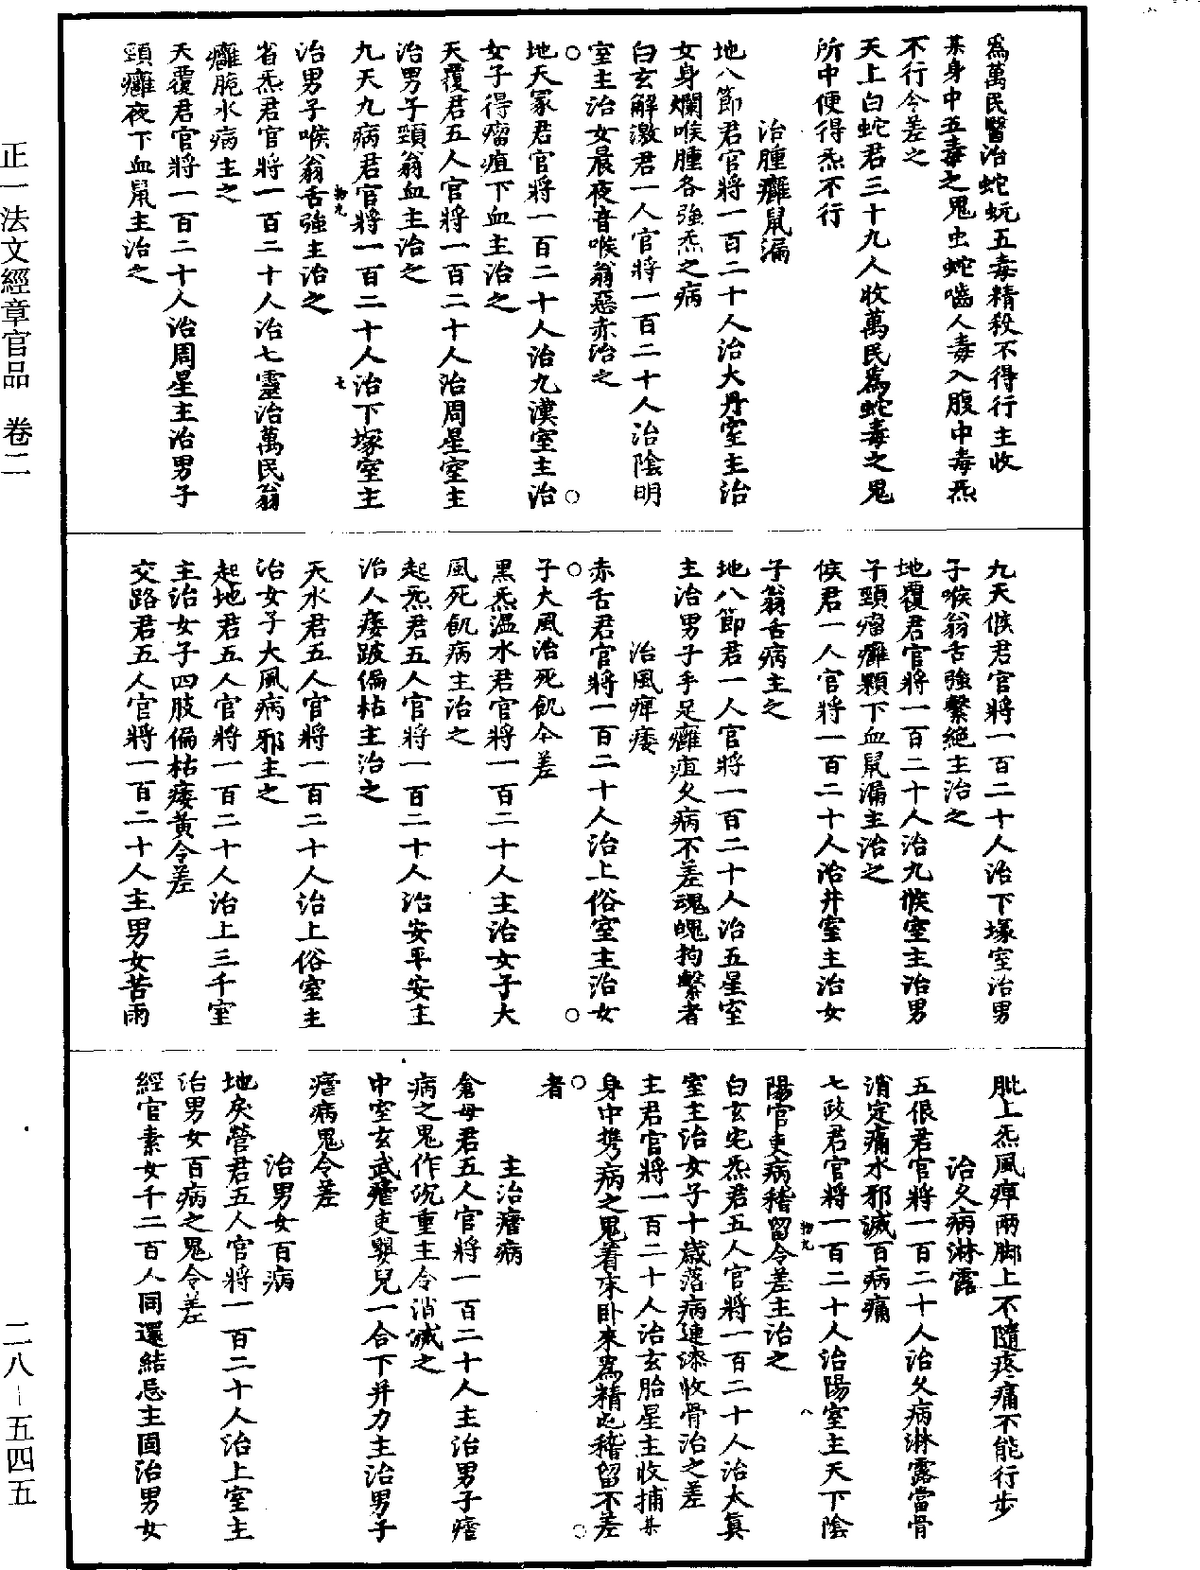 為萬民醫治蛇蚖五毒精殺不得行主收
某身中五毒之鬼虫蛇嚙人毒入腹中毒炁
不行令差之
天上白蛇君三十九人收萬民為蛇毒之鬼
所中便得炁不行
治腫癰鼠漏
地八節君官將一百二十人治大丹室主治
女身爛喉腫各強炁之病
白玄解激君一人官將一百二十人治陰明
室主治女晨夜音喉翁惡赤治之
地天冢君官將一百二十人治九漢室主治
女子得瘤疽下血主治之
天覆君五人官將一百二十人治周星室主
治男子頸翁血主治之
九天九病君官將一百二十人治下塚室主
治男子喉翁舌強主治之
省炁君官將一百二十人治七靈治萬民翁
癰腕水病主之
天覆君官將一百二十人治周星主治男子
頸癰夜下血鼠主治之
九天候君官將一百二十人治下塚室治男
子喉翁舌強繫絕主治之
地覆君官將一百二十人治九候室主治男
子頸瘤癰顆下血鼠漏主治之
候君一人官將一百二十人治井室主治女
子翁舌病主之
地八節君一人官將一百二十人治五星室
主治男子手足癰疽久病不差魂魄拘繫者
治風痺痿
赤舌君官將一百二十人治上俗室主治女
子大風治死飢令差
黑炁溫水君官將一百二十人主治女子大
風死飢病主治之
起炁君五人官將一百二十人治安平安主
治人痿跛偏枯主治之
天水君五人官將一百二十人治上俗室主
治女子大風病邪主之
起地君五人官將一百二十人治上三千室
主治女子四肢偏枯痿黃令差
交路君五人官將一百二十人主男女苦雨
肶上炁風痺兩脚上不隨疼痛不能行步
治久病淋露
五佷君官將一百二十人治久病淋露當骨
消定痛水邪滅百病痛
七政君官將一百二十人治陽室主天下陰
陽官吏病稽留令差主治之
白玄宅炁君五人官將一百二十人治太真
室主治女子十歲落病連漆收骨治之差
主君官將一百二十人治玄胎星主收捕某
身中携病之鬼着床卧來為精屯稽留不差
者
主治瘧病
倉母君五人官將一百二十人主治男子瘧
病之鬼作沉重主令消滅之
中室玄武瘧吏嬰兒一合下并力主治男子
瘧病鬼令差
治男女百病
地戾營君五人官將一百二十人治上室主
治男女百病之鬼令差
經官素女千二百人同還結忌主固治男女
正一法文經章官品 卷二
二八-五四五